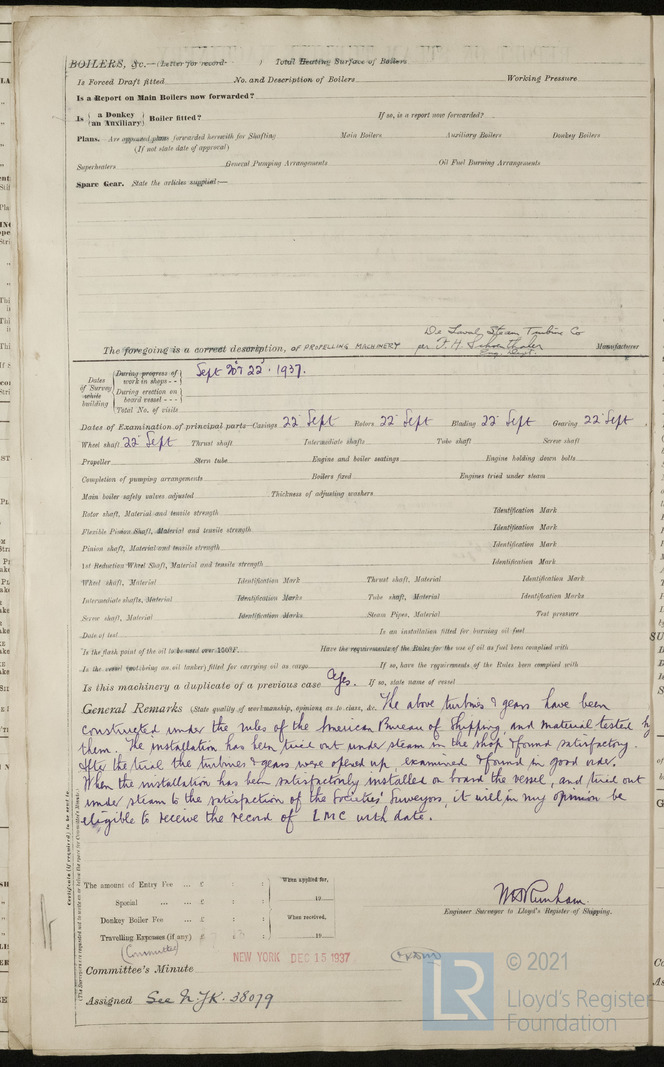 BOILERS, &c.—(Letter for record ) Total Heating Surface of Boilers
Is Forced Draft fitted No. and Description of Boilers Working Pressure
Is a Report on Main Boilers now forwarded?
Is { a Donkey / an Auxiliary } Boiler fitted? If so, is a report now forwarded?
Plans. Are approved plans forwarded herewith for Shafting Main Boilers Auxiliary Boilers Donkey Boilers
(If not state date of approval)
Superheaters General Pumping Arrangements Oil Fuel Burning Arrangements
Spare Gear. State the articles supplied:—
De Laval Steam Turbine Co
The foregoing is a correct description, OF PROPELLING MACHINERY per F. H. Manufacturer
Dates of Survey while building
During progress of work in shops - - Sept 22 . 1937.
During erection on board vessel - - -
Total No. of visits
Dates of Examination of principal parts—Casings 22 Sept Rotors 22 Sept Blading 22 Sept Gearing 22 Sept
Wheel shaft 22 Sept Thrust shaft Intermediate shafts Tube shaft Screw shaft
Propeller Stern tube Engine and boiler seatings Engine holding down bolts
Completion of pumping arrangements Boilers fixed Engines tried under steam
Main boiler safety valves adjusted Thickness of adjusting washers
Rotor shaft, Material and tensile strength Identification Mark
Flexible Pinion Shaft, Material and tensile strength Identification Mark
Pinion shaft, Material and tensile strength Identification Mark
1st Reduction Wheel Shaft, Material and tensile strength Identification Mark
Wheel shaft, Material Identification Mark Thrust shaft, Material Identification Mark
Intermediate shafts, Material Identification Marks Tube shaft, Material Identification Marks
Screw shaft, Material Identification Marks Steam Pipes, Material Test pressure
Date of test Is an installation fitted for burning oil fuel
Is the flash point of the oil to be used over 150°F. Have the requirements of the Rules for the use of oil as fuel been complied with
Is the vessel (not being an oil tanker) fitted for carrying oil as cargo If so, have the requirements of the Rules been complied with
Is this machinery a duplicate of a previous case Yes. If so, state name of vessel
General Remarks (State quality of workmanship, opinions as to class, &c. The above turbines & gears have been
constructed under the rules of the American Bureau of Shipping, and material tested by
them. The installation has been tried out under steam in the shop & found satisfactory.
After the trial the turbines & gears were opened up, examined & found in good order.
When the installation has been satisfactorily installed on board the vessel, and tried out
under steam to the satisfaction of the Societies' Surveyors, it will in my opinion be
eligible to receive the record of LMC with date.
Certificate (if required) to be sent to
(The Surveyors are requested not to write on or below the space for Committee's Minute.)
The amount of Entry Fee ... £ : : When applied for,
Special ... ... £ : : 19
Donkey Boiler Fee ... £ : : When received,
Travelling Expenses (if any) £ : : 19
Engineer Surveyor to Lloyd's Register of Shipping.
(Committee)
Committee's Minute NEW YORK DEC 15 1937
Assigned See N.YK. 38079
LR © 2021
Lloyd's Register
Foundation